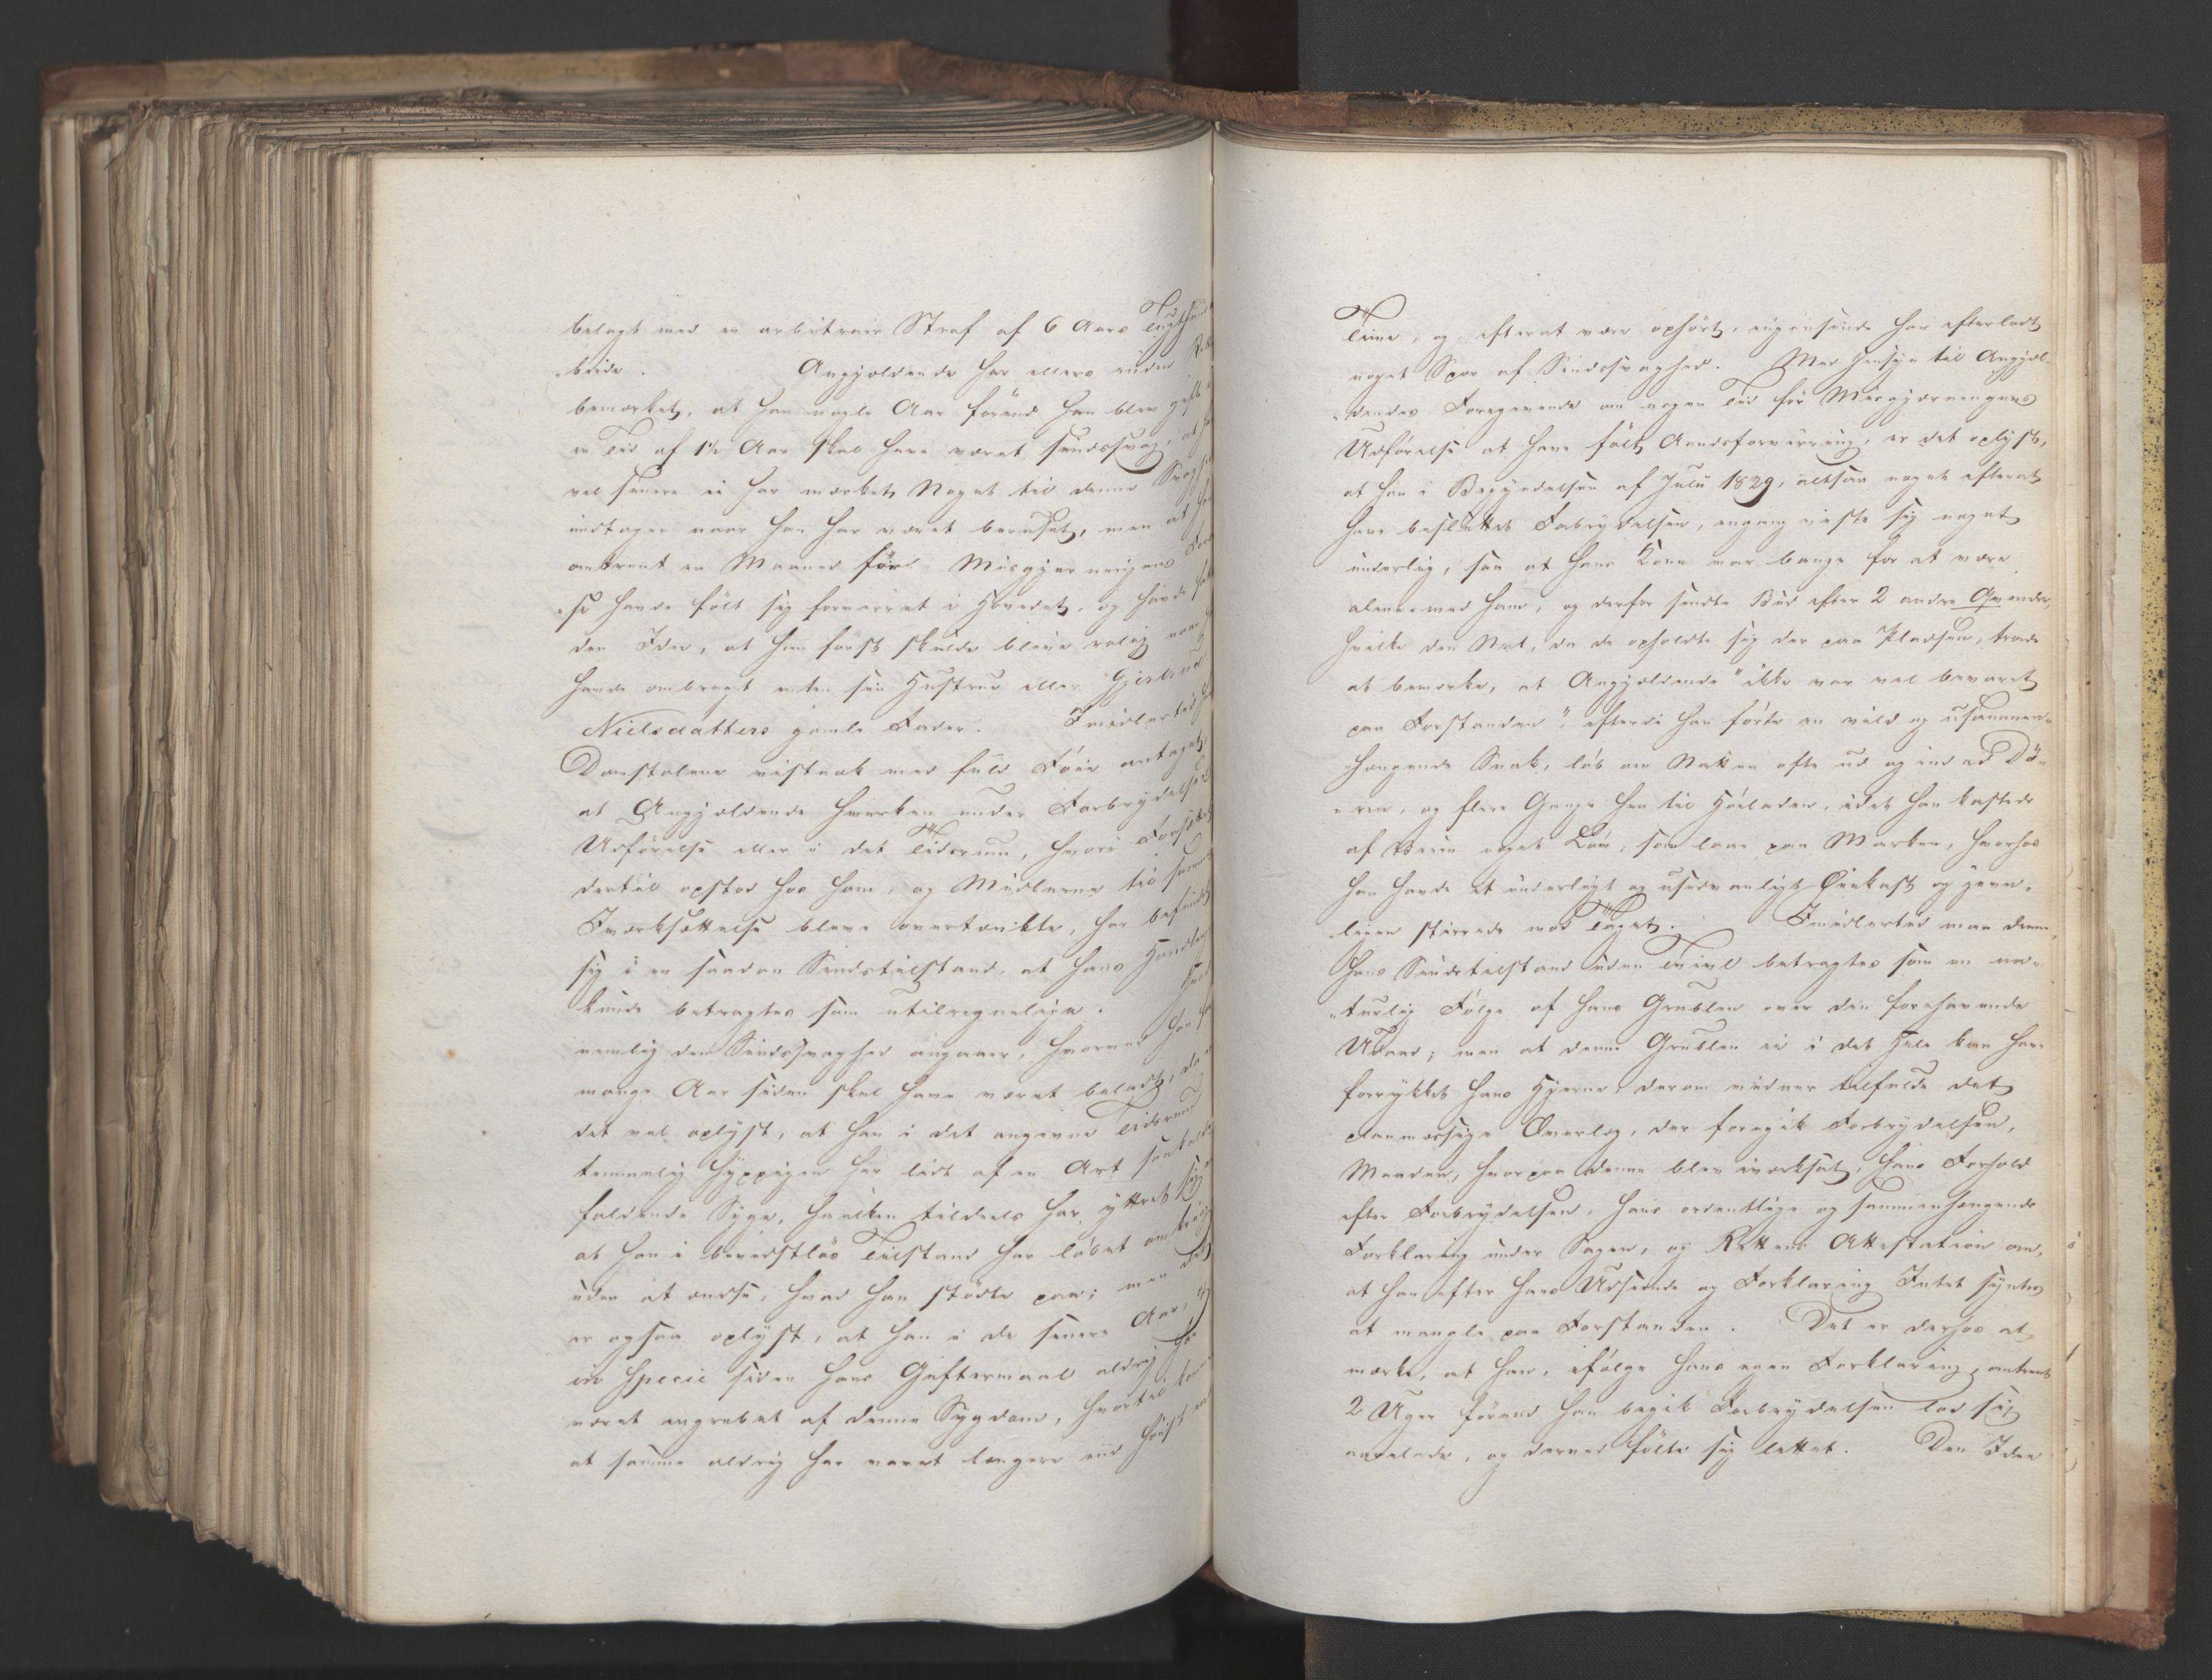 belagt med en arbitrair Straf af 6 Aars
beide. Angjældende har ellers under
bemærket, at han nogle Aar förend han blev gift
en Tid af 1½ Aar skal have været sindssvag, at han
vel senere ei har mærket Noget til denne
undtagen naar han har været beruset, men at han
omtrent en Maaned för Misgjerningens
se havde fölt sig forvirret i Hovedet, og havde
den Idee, at han först skulde blive rolig naar
havde ombragt enten sin Hustrue eller Gjertrud
Nielsdatters gamle Fader. Imidlertid
Domstolene vistnok med fuld Föie antaget,
at Angjældende hverken under Forbrydelsens
Udförelse eller i det Tidsrum, hvori Forsættet
dertil opstod hos ham, og Midlerne til sammes
Iværksættelse bleve overtænkte, har befundet
sig i en saadan Sindstilstand, at hans
kunde betragtes som utilregnelige. Hvad
nemlig den Sindssvaghed angaaer, hvormed han for
mange Aar siden skal have været beladt, da er
det vel oplyst, at han i det angivne Tidsrum
temmelig hyppigen har lidt af en Art saakaldet
faldende Syge, hvilken tildeels har yttret sig
at han i bevidstlös Tilstand har löbet omkring
uden at ændse, hvad han stödte paa; men det
er ogsaa oplyst, at han i de senere Aar, og
in specie siden hans Giftermaal aldrig har
været angrebet af denne Sygdom, hvortil kommer
at samme aldrig har varet længere end höist en
Time, og efterat være ophört, ingensinde har efterladt
noget Spor af Sindssvaghed. Med Hensyn til Angjæl-
dendes Foregivende om nogen Tid för Misgjerningens
Udförelse at have fölt Aandsforvirring, er det oplyst,
at han i Begyndelsen af Juli 1829, altsaa noget efterat
have besluttet Forbrydelsen, engang viiste sig noget
underlig, saa at hans Kone var bange for at være
alene med ham, og derfor sendte Bud efter 2 andre Qvinder,
hvilke den Nat, da de opholdte sig der paa Pladsen, troede
at bemærke, at Angjældende "ikke var vel bevaret
paa Forstanden", efterdi han förte en vild og usammen-
hængende Snak, löb om Natten ofte ud og ind ad Dö-
ren, og flere Gange hen til Höeladen, idet han kastede
af Veien noget Löv, som laae paa Marken, hvorhos
han havde et underligt og usædvanligt Öiekast og jevn-
ligen stirrede mod Taget. Imidlertid maa denne
hans Sindstilstand uden Tvivl betragtes som en na-
turlig Fölge af hans Grublen over den forehavende
Udaad; men at denne Grublen ei i det Hele kan have
forrykket hans Hjerne, derom vidner tilfulde det
planmæssige Overlæg, der foregik Forbrydelsen,
Maaden, hvorpaa denne blev iværksat, hans Forhold
efter Forbrydelsen, hans ordentlige og sammenhængende
Forklaring under Sagen, og Rettens Attestation om,
at han efter hans Udseende og Forklaring Intet syntes
at mangle paa Forstanden. Det er derhos at
mærke, at han, ifölge hans egen Forklaring, omtrent
2 Uger förend han begik Forbrydelsen lod sig
aarelade, og derved fölte sig lettet. Den Idee